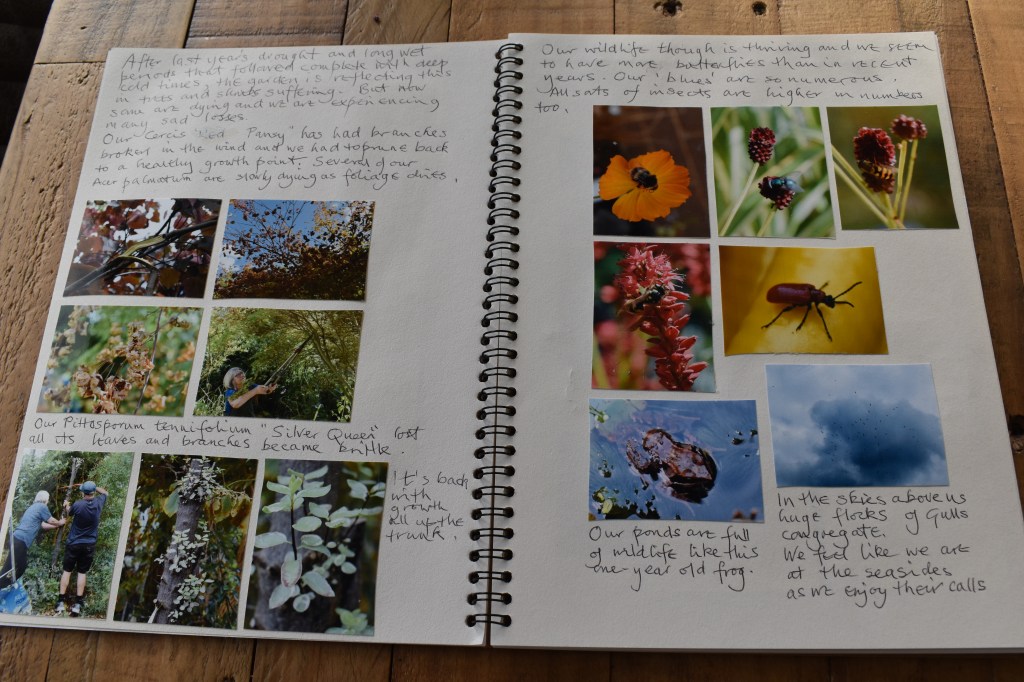 After last year's drought and long wet
periods that followed complete with deep
cold times, the garden is reflecting this
in trees and shrubs suffering. But now
some are dying and we are experiencing
many sad losses.
Our Cercis "Red Pansy" has had branches
broken in the wind and we had to prune back
to a healthy growth point. Several of our
Acer palmatum are slowly dying as foliage dries.
Our Pittosporum tennifolium "Silver Queen" lost
all its leaves and branches became brittle.
It's back
with
growth
all up the
trunk.
Our wildlife though is thriving and we seem
to have more butterflies than in recent
years. Our 'blues' are so numerous.
All sorts of insects are higher in numbers
too.
Our ponds are full
of wildlife like this
one year old frog.
In the skies above us
huge flocks of Gulls
congregate.
We feel like we are
at the seasides
as we enjoy their calls